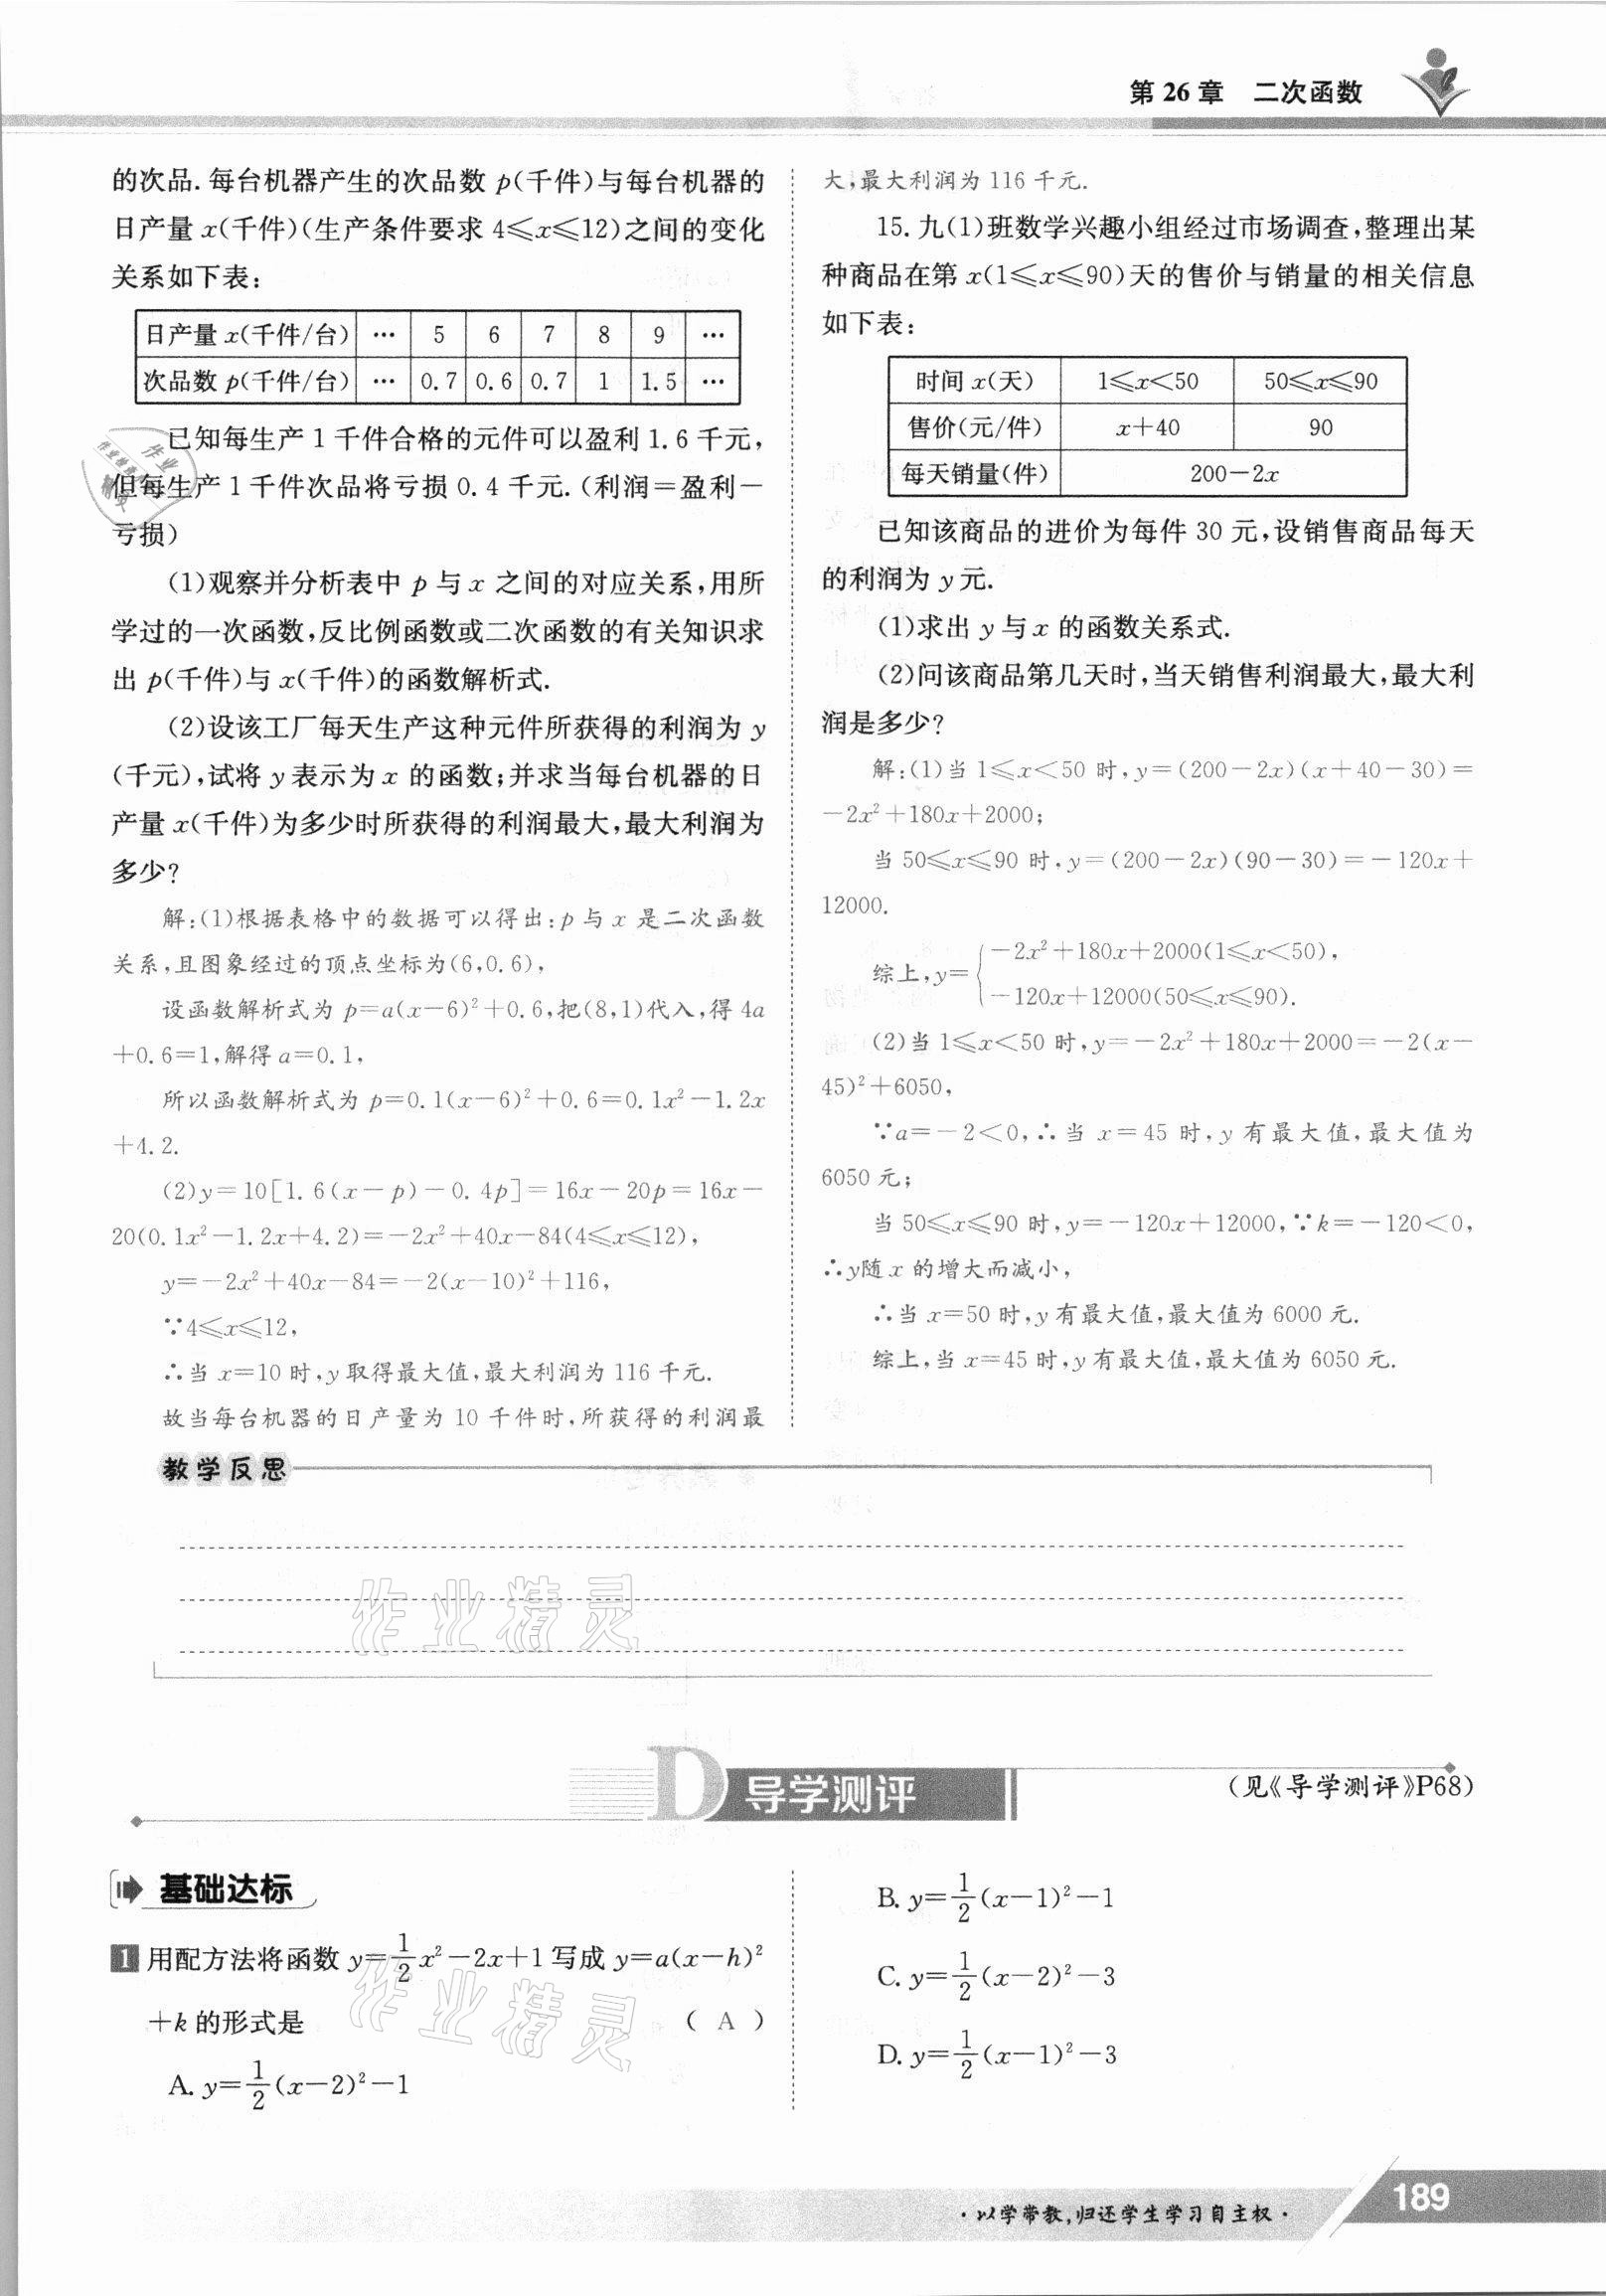 第 26 章　二次函数
的次品. 每台机器产生的次品数 p(千件)与每台机器的
日产量 x(千件)(生产条件要求 4≤x≤12)之间的变化
关系如下表:
日产量 x(千件/台) … 5 6 7 8 9 …
次品数 p(千件/台) … 0.7 0.6 0.7 1 1.5 …
已知每生产 1 千件合格的元件可以盈利 1.6 千元,
但每生产 1 千件次品将亏损 0.4 千元.(利润=盈利-
亏损)
(1)观察并分析表中 p 与 x 之间的对应关系,用所
学过的一次函数,反比例函数或二次函数的有关知识求
出 p(千件)与 x(千件)的函数解析式.
(2)设该工厂每天生产这种元件所获得的利润为 y
(千元),试将 y 表示为 x 的函数;并求当每台机器的日
产量 x(千件)为多少时所获得的利润最大,最大利润为
多少?
解:(1)根据表格中的数据可以得出:p 与 x 是二次函数
关系,且图象经过的顶点坐标为(6,0.6),
设函数解析式为 p=a(x-6)²+0.6,把(8,1)代入,得 4a
+0.6=1,解得 a=0.1,
所以函数解析式为 p=0.1(x-6)²+0.6=0.1x²-1.2x
+4.2.
(2)y=10[1.6(x-p)-0.4p]=16x-20p=16x-
20(0.1x²-1.2x+4.2)=-2x²+40x-84(4≤x≤12),
y=-2x²+40x-84=-2(x-10)²+116,
∵4≤x≤12,
∴当 x=10 时,y 取得最大值,最大利润为 116 千元.
故当每台机器的日产量为 10 千件时,所获得的利润最
大,最大利润为 116 千元.
15. 九(1)班数学兴趣小组经过市场调查,整理出某
种商品在第 x(1≤x≤90)天的售价与销量的相关信息
如下表:
时间 x(天) 1≤x<50 50≤x≤90
售价(元/件) x+40 90
每天销量(件) 200-2x
已知该商品的进价为每件 30 元,设销售商品每天
的利润为 y 元.
(1)求出 y 与 x 的函数关系式.
(2)问该商品第几天时,当天销售利润最大,最大利
润是多少?
解:(1)当 1≤x<50 时,y=(200-2x)(x+40-30)=
-2x²+180x+2000;
当 50≤x≤90 时,y=(200-2x)(90-30)=-120x+
12000.
综上,y={-2x²+180x+2000(1≤x<50),
-120x+12000(50≤x≤90).
(2)当 1≤x<50 时,y=-2x²+180x+2000=-2(x-
45)²+6050,
∵a=-2<0,∴当 x=45 时,y 有最大值,最大值为
6050 元;
当 50≤x≤90 时,y=-120x+12000,∵k=-120<0,
∴y随 x 的增大而减小,
∴当 x=50 时,y 有最大值,最大值为 6000 元.
综上,当 x=45 时,y 有最大值,最大值为 6050 元.
教学反思
作业精灵
D 导学测评
(见《导学测评》P68)
基础达标
1 用配方法将函数 y=1/2x²-2x+1 写成 y=a(x-h)²
+k 的形式是 ( A )
A. y=1/2(x-2)²-1
B. y=1/2(x-1)²-1
C. y=1/2(x-2)²-3
D. y=1/2(x-1)²-3
作业精灵
·以学带教,归还学生学习自主权·
189